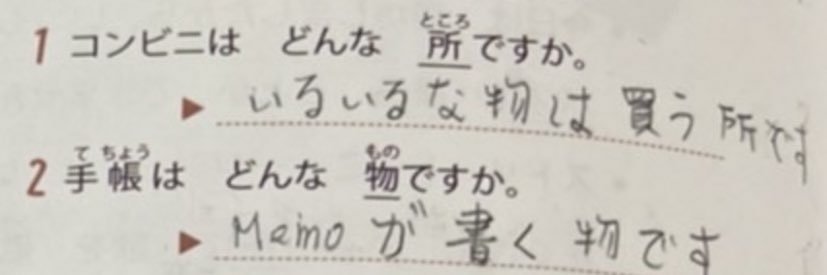 1 コンビニは どんな 所ですか。
▶ いるいるな物は買う所です
2 手帳は どんな 物ですか。
▶ Memoが書く物です